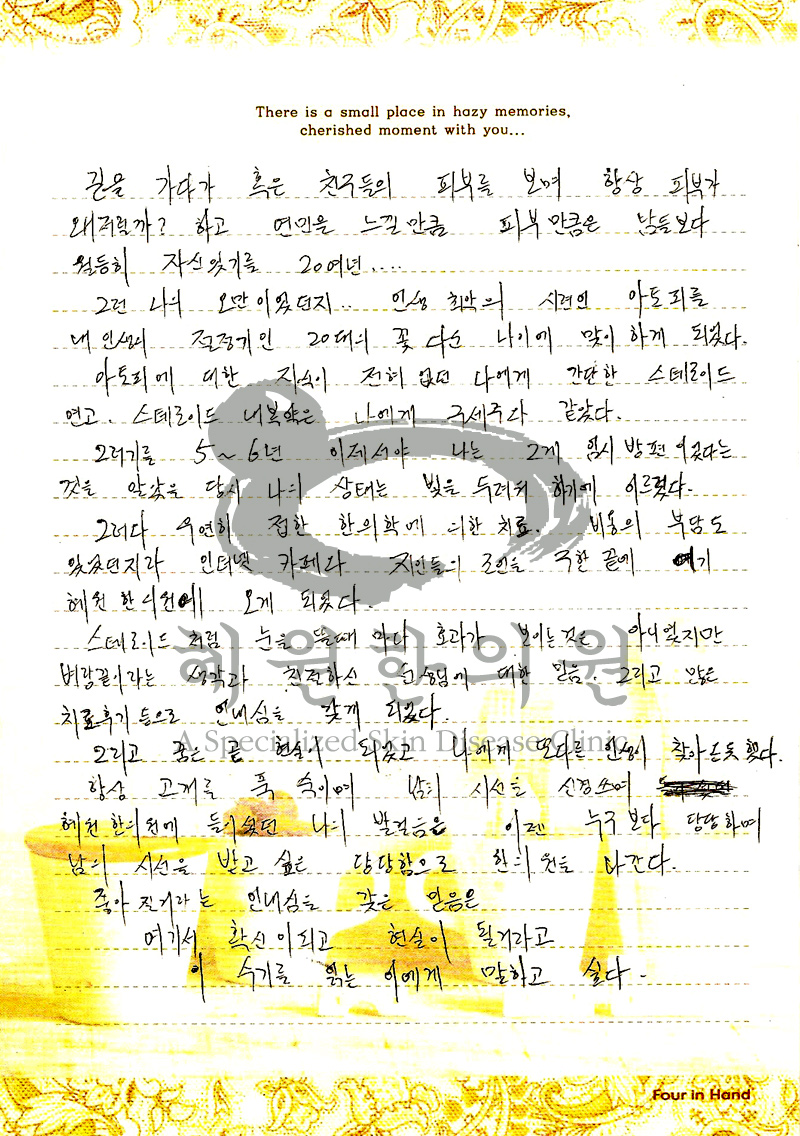 There is a small place in hazy memories,
cherished moment with you...
길을 가다가 혹은 친구들의 피부를 보며 항상 피부가
왜저럴까? 하고 연민을 느낄만큼 피부만큼은 남들보다
월등히 자신있기를 20여년....
그런 나의 오만이었던지.. 인생 최악의 시련인 아토피를
내 인생의 절정기인 20대의 꽃다운 나이에 맞이하게 되었다.
아토피에 대한 지식이 전혀 없던 나에게 간단한 스테로이드
연고. 스테로이드 내복약은 나에게 구세주와 같았다.
그러기를 5~6년 이제서야 나는 그게 임시방편이었다는
것을 알았을 당시 나의 상태는 빛을 두려워 하기에 이르렀다.
그러다 우연히 접한 한의학에 의한 치료. 비용의 부담도
있었던지라 인터넷 카페와 지인들의 조언을 구한 끝에 여기
혜원한의원에 오게 되었다.
스테로이드처럼 눈을 뜰때 마다 효과가 보이는것은 아니었지만
벼랑끝이라는 생각과 친절하신 선생님에 대한 믿음. 그리고 많은
치료후기 등으로 인내심을 갖게 되었다.
그리고 꿈은 곧 현실이 되었고 나에게 또다른 인생이 찾아온듯 했다.
항상 고개를 푹 숙이며 남의 시선을 신경쓰며
혜원한의원에 들어섰던 나의 발걸음은 이젠 누구보다 당당하며
남의 시선을 받고 싶은 당당함으로 한의원을 나간다.
좋아질거라는 인내심을 갖은 믿음은
여기서 확신이되고 현실이 될거라고
이 수기를 읽는 이에게 말하고 싶다.
혜원한의원
A Specialized Skin Disease Clinic
Four in Hand